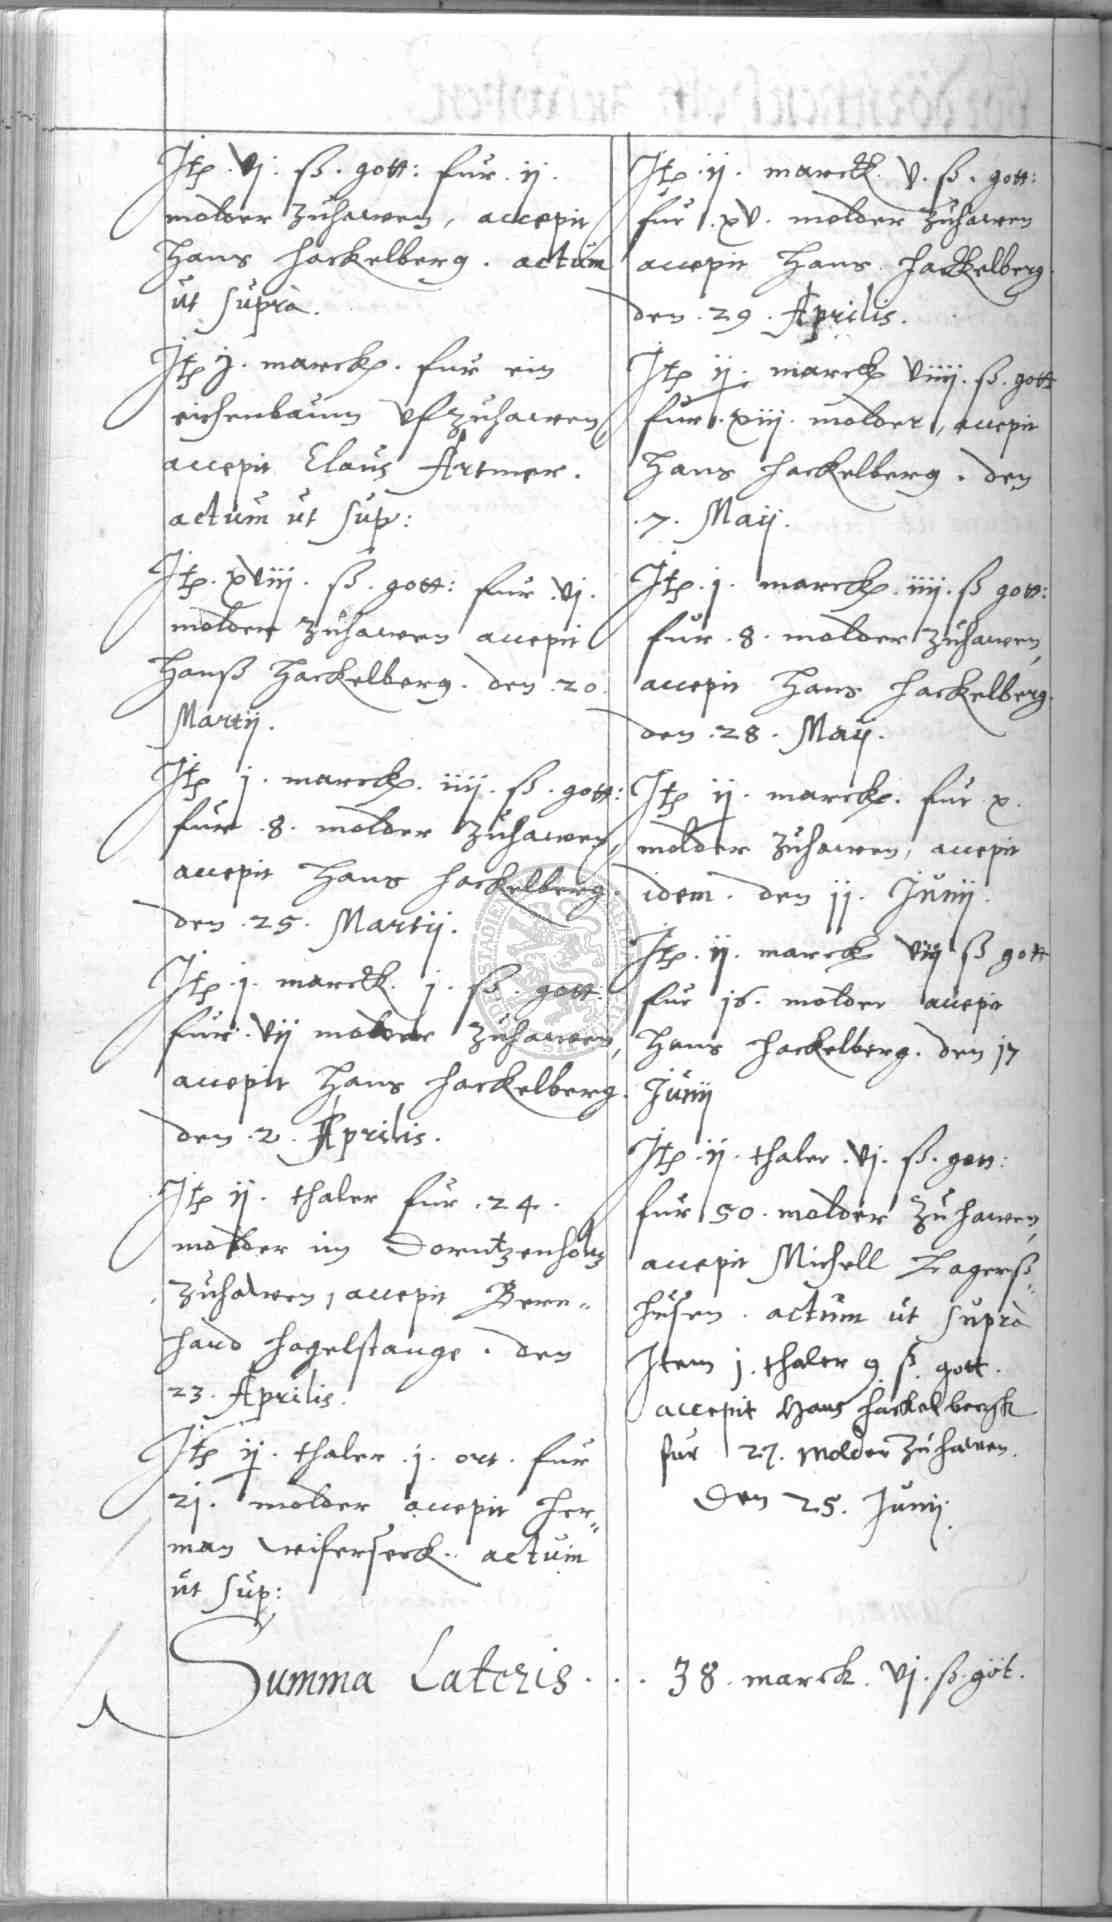 Itp. vj. ß. gott: fur. ij.
molder zuhawen, accepit
Hans Hackelberg. actum
ut supra.
Itp j. marckp. fur ein
eichenbaum ufzuhawen
accepit Claus Artmer.
actum ut sup:
Itp. xviij. ß. gott: fur vj.
molder zuhawen accepit
Hanß Hackelberg. den .20.
Martij.
Itp j. marckp. iiij. ß. gott:
fur .8. molder zuhawen,
accepit Hans Hackelberg.
den .25. Martij.
Itp. j. marck. j. ß. gott:
fur. vij molder zuhawen,
accepit Hans Hackelberg.
den .2. Aprilis.
Itp ij. thaler fur .24.
molder im Dorntzenholtz
zuhawen, accepit Bern„
hard Hagelstange. den
23. Aprilis.
Itp ij. thaler .j. ort. fur
2j. molder accepit Her„
man actum
ut sup:
Itp .ij. marck. v. ß. gott:
fur .xv. molder zuhawen
accepit Hans Hackelberg.
den .29. Aprilis.
Itp ij. marckp viiij. ß. gott
fur .xiij. molder, accepit
Hans Hackelberg. den
.7. Maij.
Itp. j. marckp. iiij. ß gott:
fur .8. molder zuhawen,
accepit Hans Hackelberg.
den .28. Maij.
Itp ij. marckp. fur x.
molder zuhawen, accepit
idem. den jj. Junij.
Itp. ij. marckp viij ß gott
fur j6. molder accepit
Hans Hackelberg. den j7
Junij
Itp .ij. thaler .vj. ß. gott:
fur 50. molder zuhawen,
accepit Michell Lagerß„
husen. actum ut supra
Item j. thaler 9 ß. gott.
accepit Hans Hackelbergk
fur 27. molder zuhawen.
Den 25. Junij.
Summa Lateris . . . 38. marck. vj. ß. gőt.